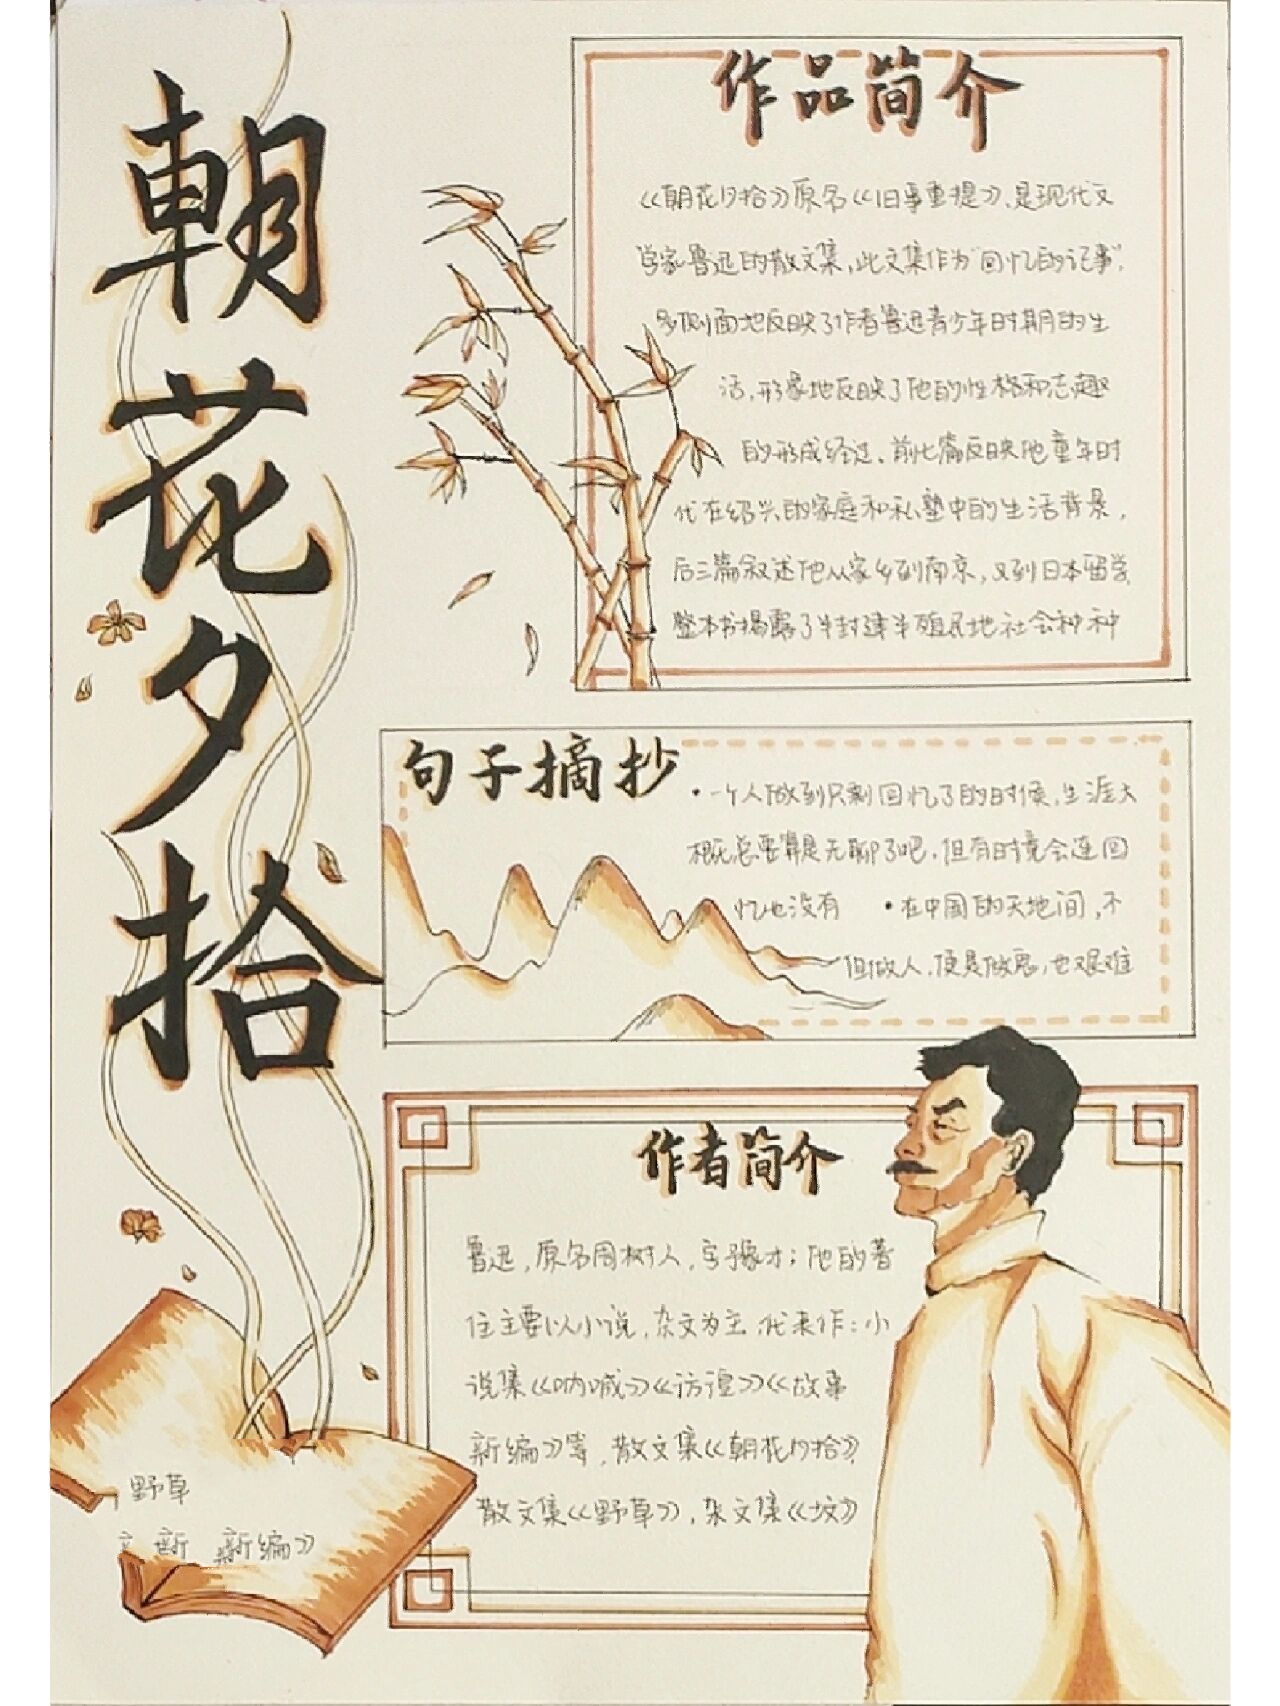 朝花夕拾
作品简介
《朝花夕拾》原名《旧事重提》、是现代文
学家鲁迅的散文集,此文集作为"回忆的记事",
多侧面地反映了作者鲁迅青少年时期的生
活,形象地反映了他的性格和志趣
的形成经过、前七篇反映他童年时
代在绍兴的家庭和私塾中的生活背景,
后三篇叙述他从家乡到南京,又到日本留学,
整本书揭露了半封建半殖民地社会种种
句子摘抄
·一个人做到只剩回忆了的时候,生涯大
概总要算是无聊了吧,但有时竟会连回
忆也没有 ·在中国的天地间,不
但做人,便是做鬼,也艰难
作者简介
鲁迅,原名周树人,字豫才;他的著
作主要以小说,杂文为主,代表作:小
说集《呐喊》《彷徨》《故事
新编》等,散文集《朝花夕拾》,
散文集《野草》,杂文集《坟》
野草
新 新编》